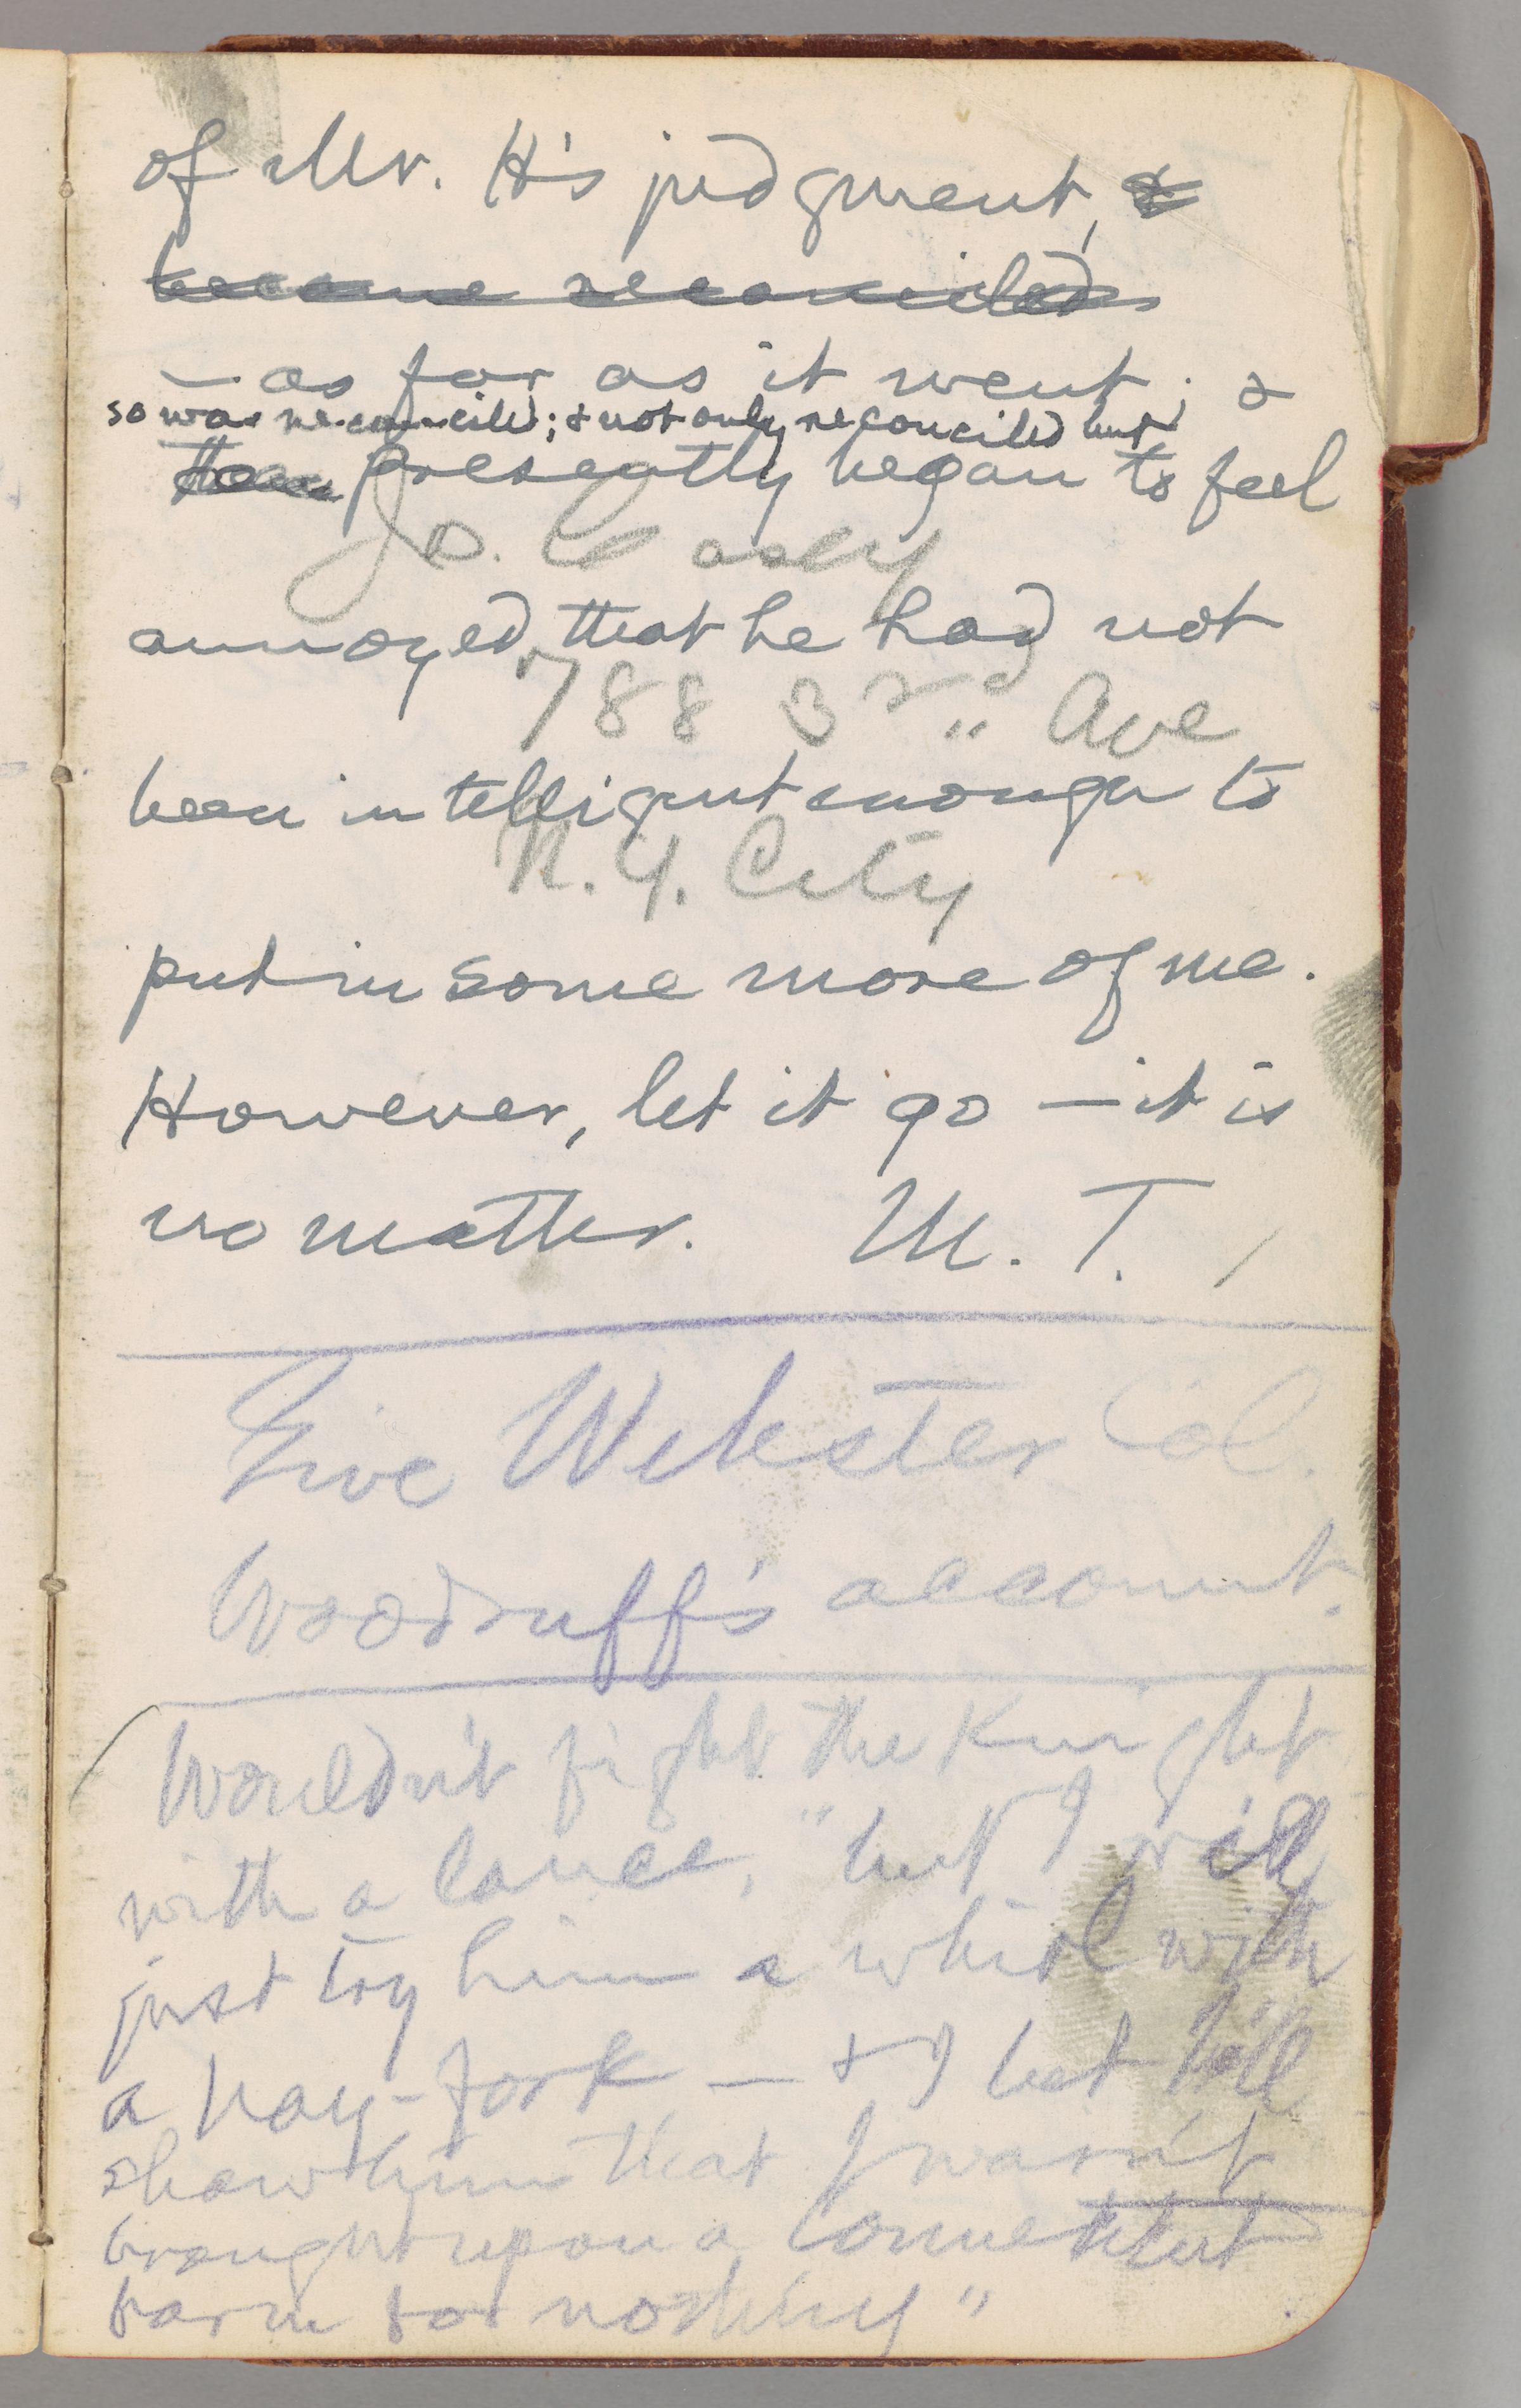 of Mr. H's judgment, &
became reconciled
— as far as it went; &
so was reconciled; & not only reconciled but
then presently began to feel
Jo. Casey
annoyed that he had not
788 3rd Ave
been intelligent enough to
N.Y. City
put in some more of me.
However, let it go — it is
no matter. M. T.
Give Webster Col.
Woodruff's account.
Wouldn't fight the Knight
with a lance, "but I will
just try him a whirl with
a hay-fork — & I bet I'll
show him that I warn't
brought up on a Connecticut
farm for nothing"